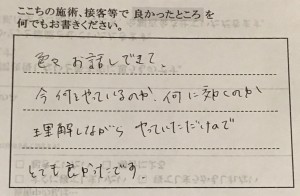 ここちの施術、接客等で 良かったところ を
何でもお書きください。
色々お話しできて、
今何をやっているのか、何に効くのか
理解しながら やっていただけるので
とても良かったです。